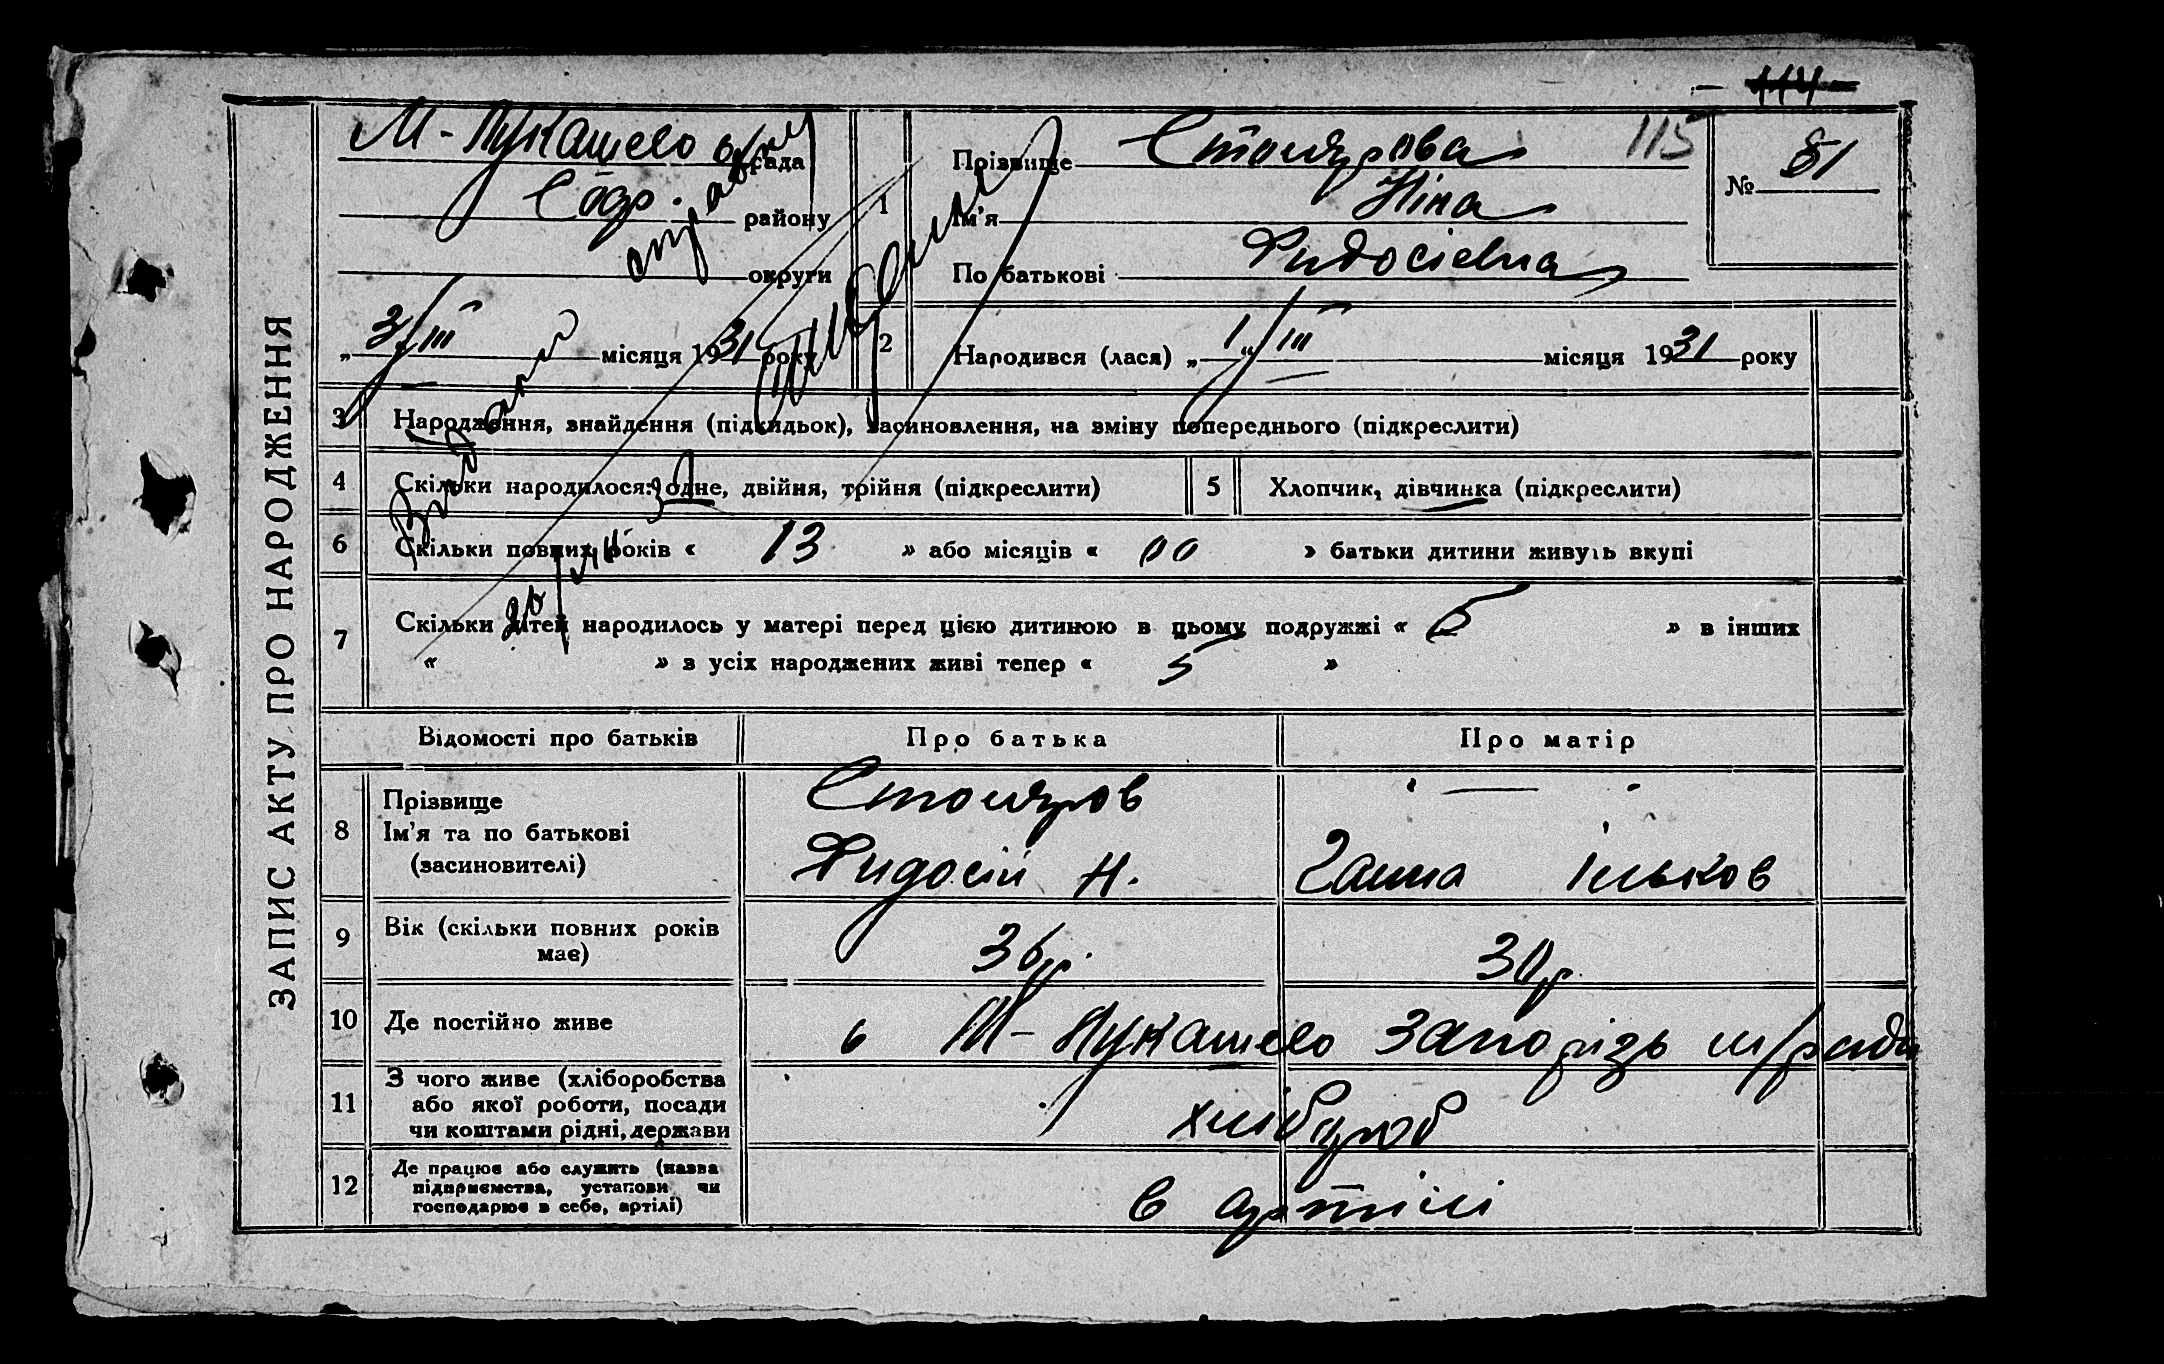 114
115
М-Лукашево рада
району
округи
„ 3/III місяця 1931 року
1
Прізвище Столярова
Ім'я Ніна
По батькові Фидосієвна
№ 81
2
Народився (лася) „ 1 “ / III місяця 1931 року
ЗАПИС АКТУ ПРО НАРОДЖЕННЯ
3 Народження, знайдення (підкидьок), засиновлення, на зміну попереднього (підкреслити)
4 Скільки народилося: одне, двійня, трійня (підкреслити)
5 Хлопчик, дівчинка (підкреслити)
6 Скільки повних років « 13 » або місяців « 00 » батьки дитини живуть вкупі
7 Скільки дітей народилось у матері перед цією дитиною в цьому подружжі « 5 » в інших
« » з усіх народжених живі тепер « 5 »
Відомості про батьків
Про батька
Про матір
8
Прізвище
Ім'я та по батькові
(засиновителі)
Столяров
Фидосій Н.
Ганна Ільков
9
Вік (скільки повних років
має)
36 р.
30 р
10 Де постійно живе
в М-Лукашево Запорізь м/ради
11
З чого живе (хліборобства
або якої роботи, посади
чи коштами рідні, держави
хлібороб
12
Де працює або служить (назва
підприємства, установи чи
господарює в себе, артілі)
в артілі